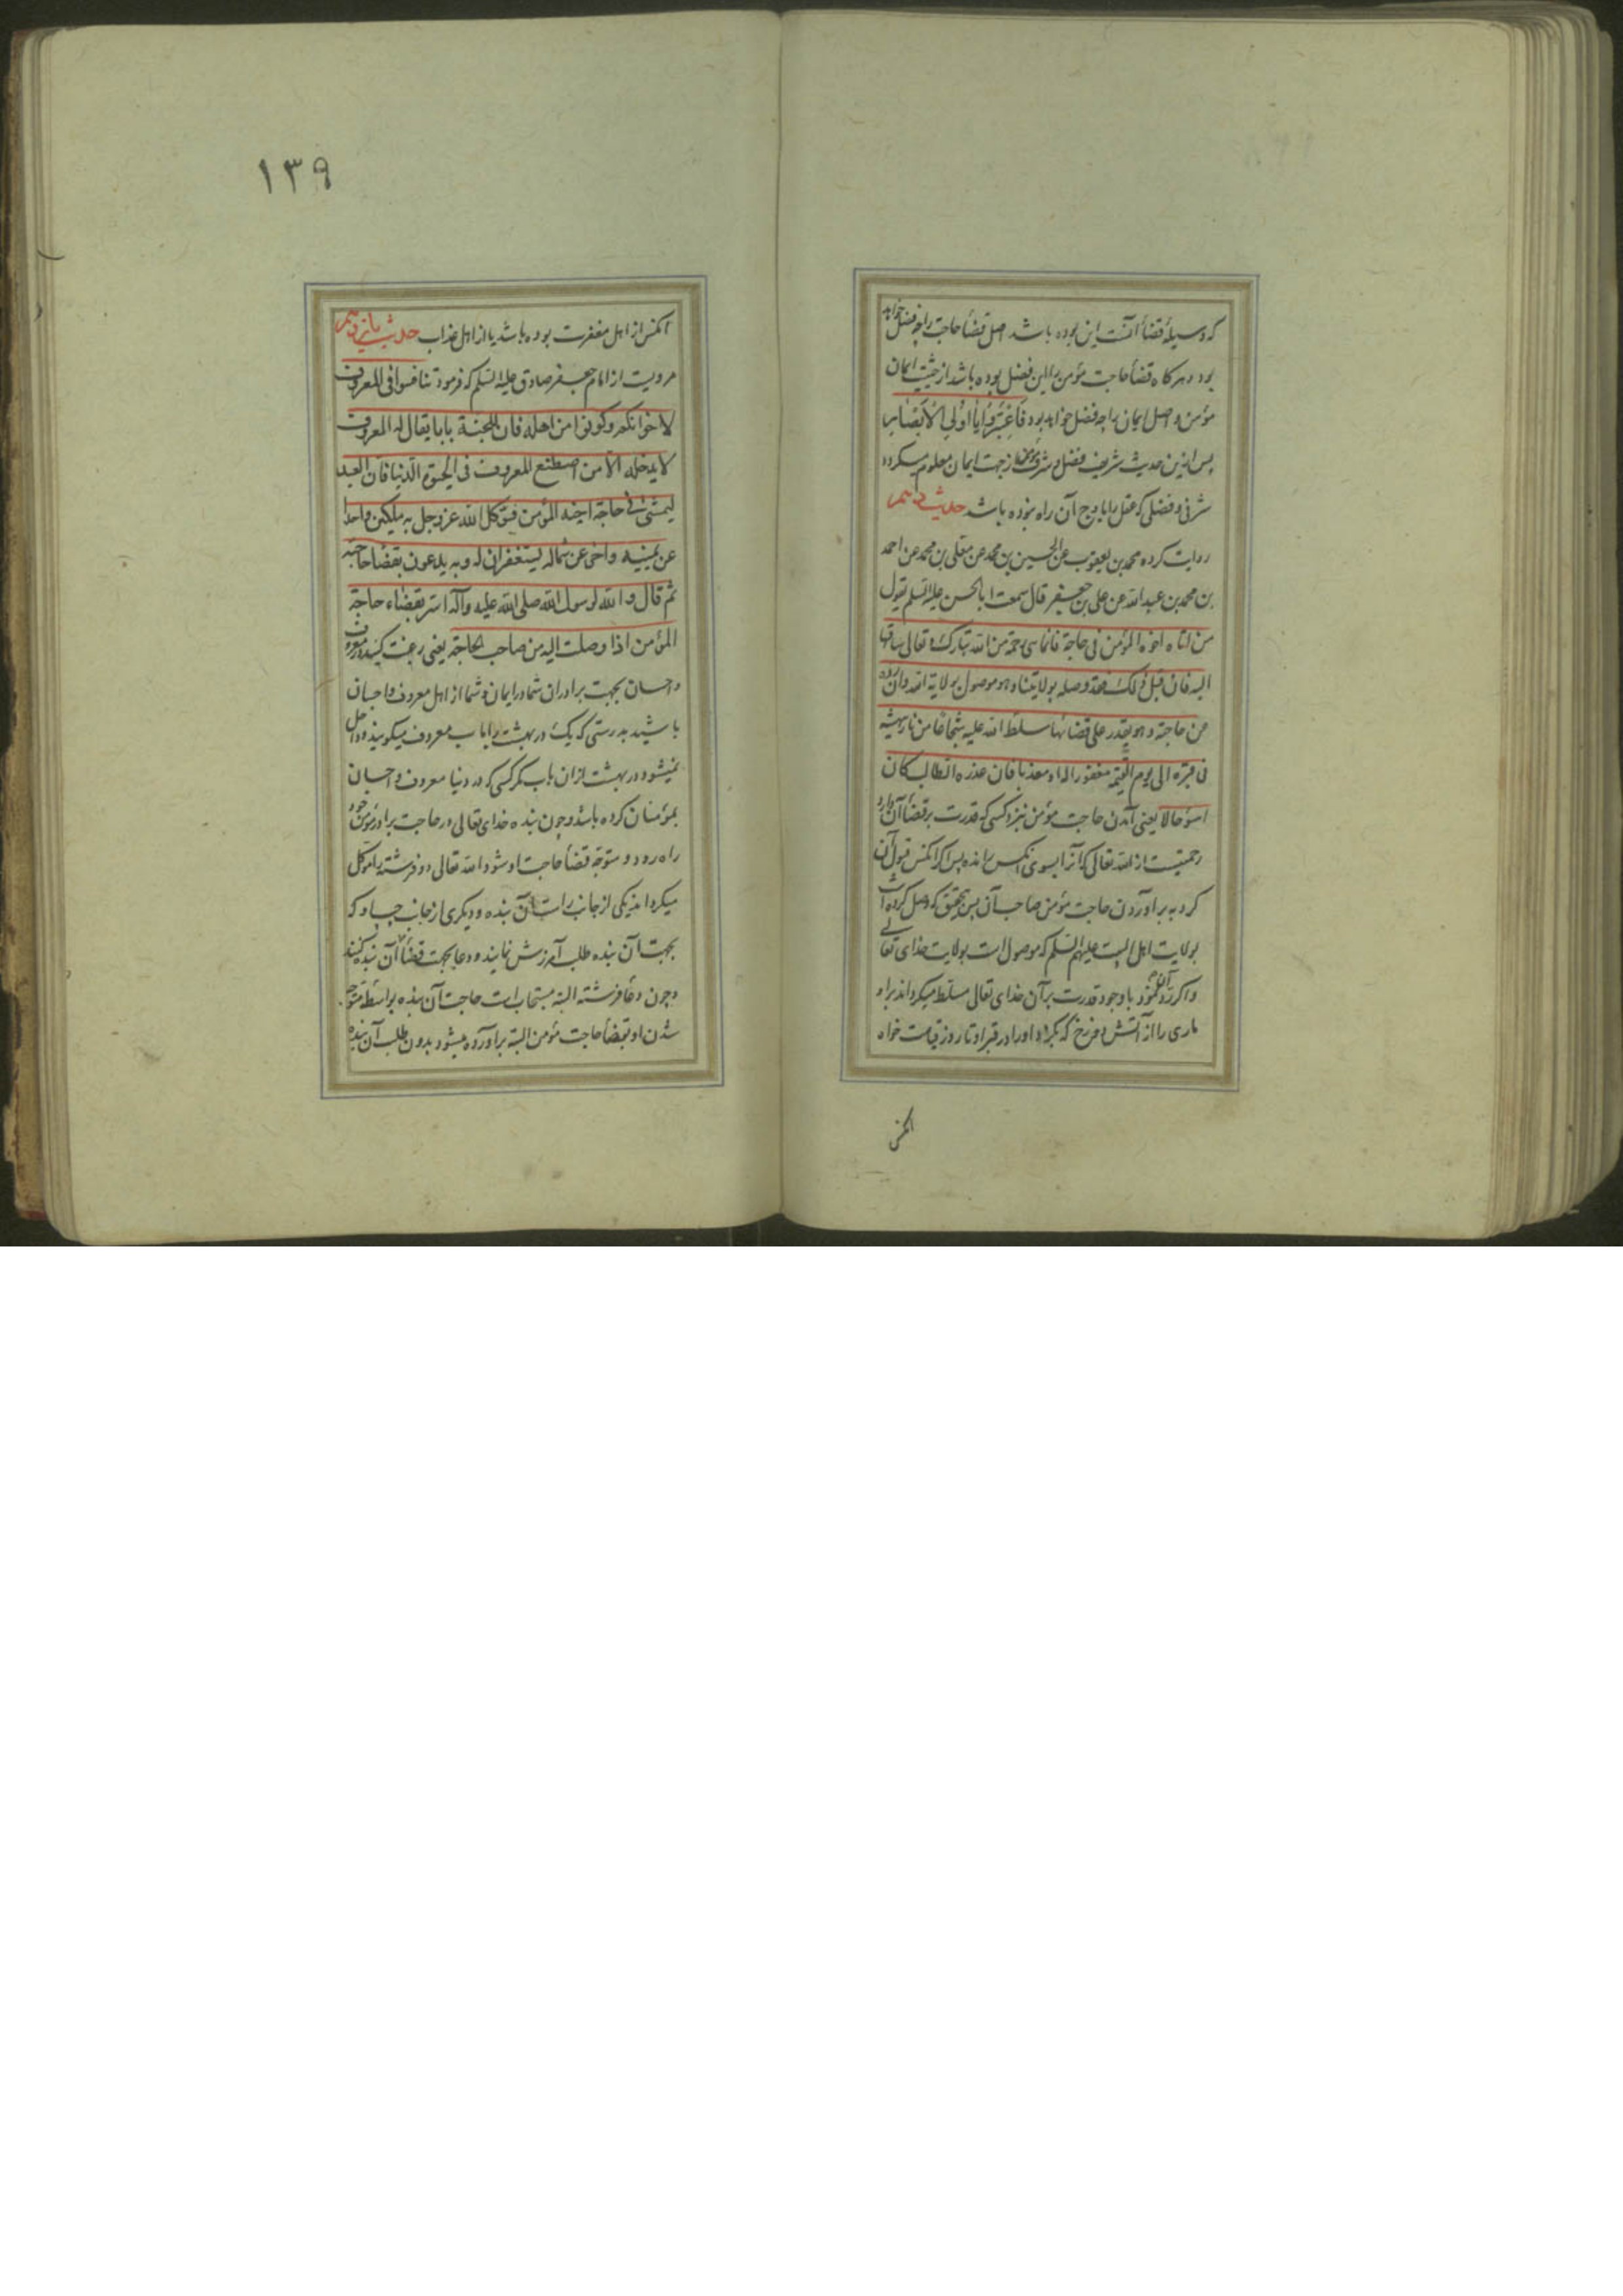 که وسیلهٔ قضأ آنست این بوده باشد اصل قضأ حاجت را چه فضل خواهد
بود و هرکاه قضأ حاجت مؤمن را این فضل بوده باشد از حیثیت ایمان
مؤمن و اصل ایمان را چه فضل خواهد بود فَاعْتَبِرُوا یَا اُولِی الْاَبْصَار
پس ازین حدیث شریف فضل و شرف از جهت ایمان معلوم میکردد
شرفی و فضلی که عقل را باوج آن راه نبوده باشد حدیث دهم
روایت کرده محمد بن یعقوب عن الحسین بن محمد عن معلی بن محمد عن احمد
بن محمد بن عبدالله عن علی بن جعفر قال سمعت ابا الحسن علیه السلم یقول
من اتاه اخوه المؤمن فی حاجة فانما هی رحمة من الله تبارک و تعالی ساقها
الیه فان قبل ذلک فقد وصله بولایتنا و هو موصول بولایة الله و ان رده
عن حاجته و هو یقدر علی قضائها سلط الله علیه شجاعا من نار ینهشه
فی قبره الی یوم القیمة مغفورا له او معذبا فان عذره الطالب کان
اسوء حالا یعنی آمدن حاجت مؤمن نزد کسی که قدرت بر قضأ آن دارد
رحمتیست از الله تعالی که آنرا بسوی آنکس رانده پس اکر آنکس قبول آن
کرد به برآوردن حاجت مؤمن صاحب آن پس بتحقیق که وصل کرده است
بولایت اهل البیت علیهم السلم که موصول است بولایت خدای تعالی
و اکر رد آن نمود با وجود قدرت بر آن خدای تعالی مسلط میکرداند بر او
ماری را از آتش دوزخ که بکزد او را در قبر او تا روز قیامت خواه
آنکس
١٣٩
آنکس از اهل مغفرت بوده باشد یا از اهل عذاب حدیث یازدهم
مرویست از امام جعفر صادق علیه السلم که فرمود تنافسوا فی المعروف
لاخوانکم و کونوا من اهله فان للجنة بابا یقال له المعروف
لا یدخله الا من اصطنع المعروف فی الحیوة الدنیا فان العبد
لیمشی فی حاجة اخیه المؤمن فیوکل الله عز و جل به ملکین واحدا
عن یمینه و اخر عن شماله یستغفران له و به یدعون بقضأ حاجته
ثم قال و الله لرسول الله صلی الله علیه و آله اسر بقضاء حاجة
المؤمن اذا وصلت الیه من صاحب الحاجة یعنی رغبت کنید در معروف
و احسان بجهت برادران شما در ایمان و شما از اهل معروف و احسان
باشید بدرستی که یک در بهشت را باب معروف میکویند و داخل
نمیشود در بهشت از ان باب مکر کسی که در دنیا معروف و احسان
بمؤمنان کرده باشد و چون بنده خدای تعالی در حاجت برادر مؤمن خود
راه رود و متوجه قضأ حاجت او شود الله تعالی دو فرشته را موکل
میکرداند یکی از جانب راست آن بنده و دیکری از جانب چپ او که
بجهت آن بنده طلب آمرزش نمایند و دعا بجهت قضأ آن بنده کنند
و چون دعأ فرشته البته مستجاب است حاجت آن بنده بواسطه متوجه
شدن او بقضأ حاجت مؤمن البته برآورده میشود بدون طلب آن بنده